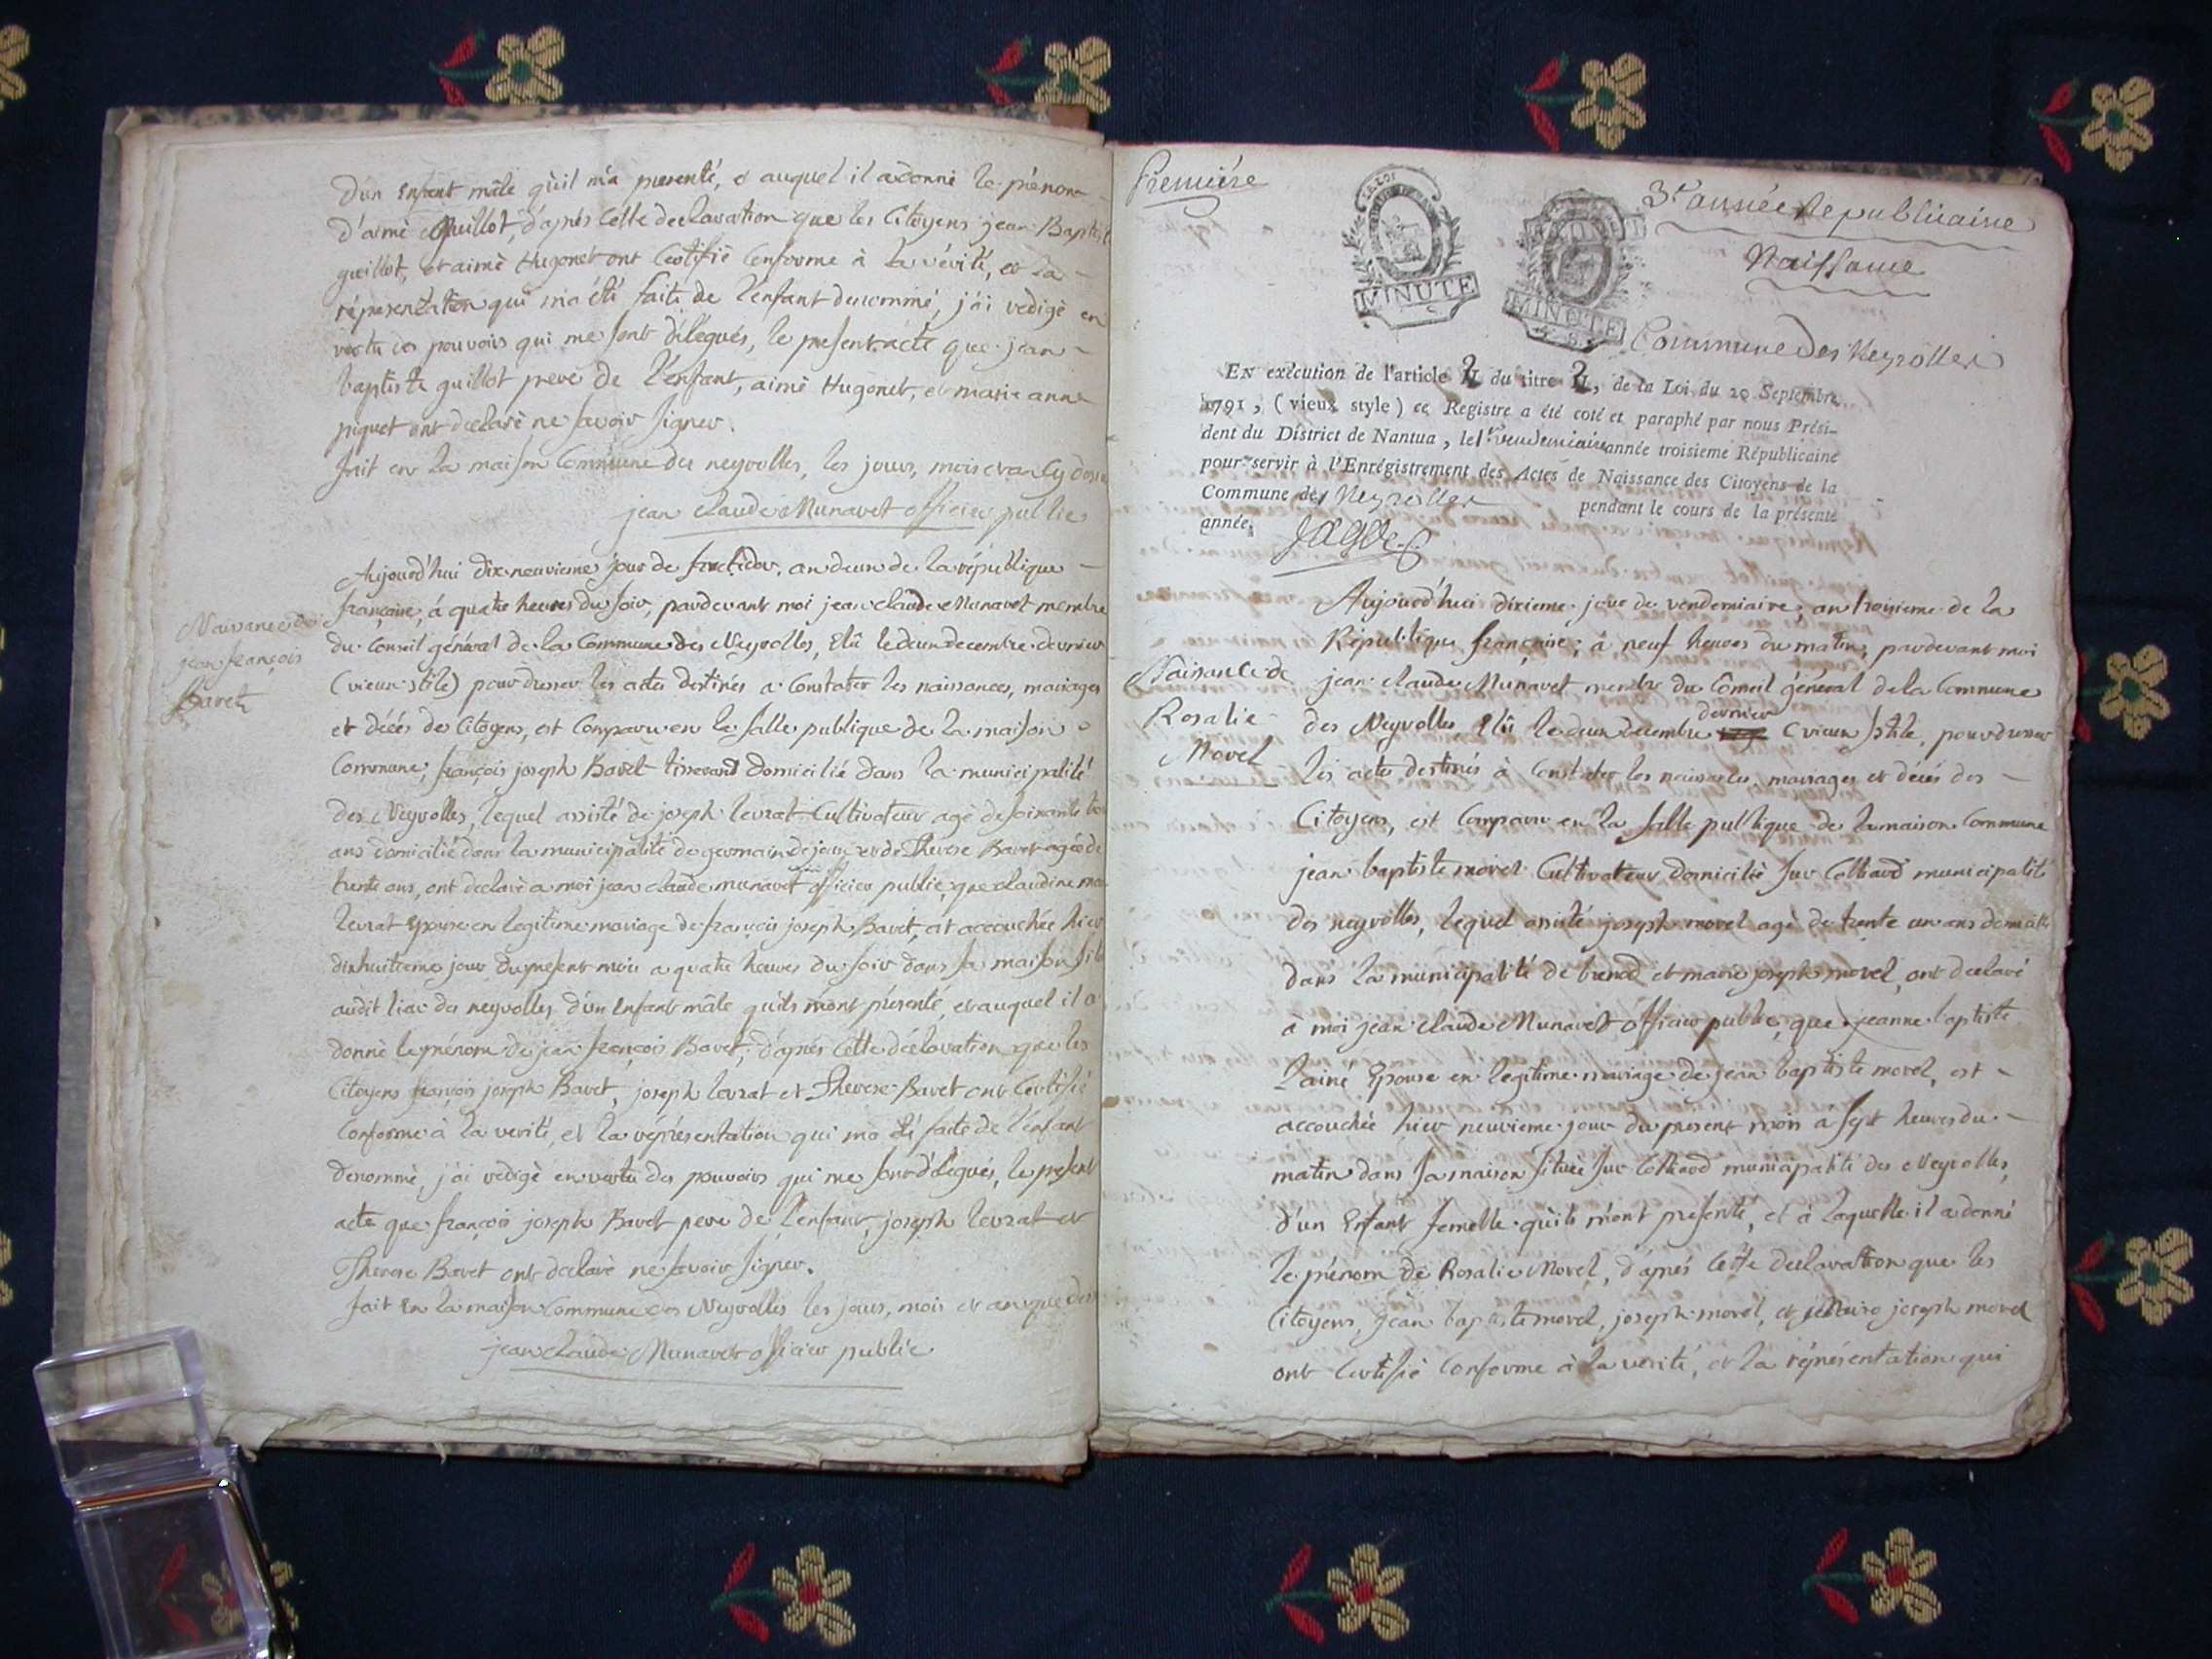 D'un Enfant mâle qu'il m'a presenté, & auquel il a donné le prénom
d'aimé Guillot, d'après cette declaration que les Citoyens jean Baptiste
guillot, et aimé Hugonet ont Certifié Conforme à la vérité, et la
répresentation qui m'a été faite de l'enfant denommé, j'ai redigé en
vertu des pouvoirs qui me sont délegués, le present acte que jean
baptiste guillot pere de l'enfant, aimé Hugonet, et marie anne
piquet ont declaré ne savoir signer.
fait en la maison Commune des neyrolles, les jour, mois et an Cy dessus
jean claude Munavet officier public
Aujourd'hui dix neuvieme jour de fructidor, an deux de la république
française, à quatre heures du soir, pardevant moi jean claude Munavet membre
du Conseil général de la Commune des Neyrolles, Elû le deux decembre dernier
Naissance de
jean françois
Bavet
(vieux stile) pour dresser les actes destinés a Constater les naissances, mariages
et décés des Citoyens, est Comparu en la salle publique de la maison
Commune, françois joseph Bavet tisserand domicilié dans la municipalité
des Neyrolles, lequel assisté de joseph levrat Cultivateur agé de soixante
ans domicilié dans la municipalité de germain de joux et de Therese Bavet agée de
trente ans, ont declaré a moi jean claude munavet officier public, que claudine
levrat Epouse en legitime mariage de françois joseph Bavet, est accouchée hier
dixhuitieme jour du present mois a quatre heures du soir dans sa maison
audit lieu des neyrolles d'un Enfant mâle qu'ils m'ont présenté, et auquel il a
donné le prénom de jean françois Bavet, d'après cette déclaration que les
Citoyens françois joseph Bavet, joseph levrat et Therese Bavet ont Certifié
Conforme à la verité, et la répresentation qui m'a été faite de l'enfant
denommé, j'ai redigé en vertu des pouvoirs qui me sont délegués, le present
acte que françois joseph Bavet pere de l'enfant, joseph levrat et
Therese Bavet ont declaré ne savoir signer.
fait En la maison Commune des Neyrolles les jour, mois et an que dessus
jean claude Munavet officier public
Premiére
LA LOI
MINUTE
MINUTE
3e. année Republicaine
Naissance
Commune des Neyrolles
EN exécution de l'article 2 du titre 2, de la Loi du 20 Septembre
1791, (vieux style) ce Registre a été coté et paraphé par nous Prési-
dent du District de Nantua, le 1er. vendemiaire année troisieme Républicaine
pour servir à l'Enrégistrement des Actes de Naissance des Citoyens de la
Commune des Neyrolles pendant le cours de la présente
année.
Aujourd'hui dixieme jour de vendemiaire, an troisieme de la
République française, à neuf heures du matin, pardevant moi
Naissance de
Rosalie
Morel
jean claude Munavet membre du Conseil général de la Commune
des Neyrolles, Elû le deux decembre dernier (vieux stile, pour dresser
les actes destinés à Constater les naissances, mariages et décés des
Citoyens, est Comparu en la salle publique de la maison Commune
jean baptiste morel Cultivateur domicilié sur Colliard municipalité
des neyrolles, lequel assisté joseph morel agé de trente un ans domicilié
dans la municipalité de brenod et marie joseph morel, ont declaré
à moi jean claude Munavet officier public, que jeanne baptiste
lainé Epouse en legitime mariage de jean baptiste morel, est
accouchée hier neuvieme jour du present mois a sept heures du
matin dans sa maison située sur Colliard municipalité des Neyrolles,
d'un Enfant femelle qu'ils m'ont presenté, et à laquelle il a donné
le prénom de Rosalie Morel, d'après cette declaration que les
Citoyens, jean baptiste morel, joseph morel, et Marie joseph morel
ont Certifié Conforme à la verité, et la répresentation qui